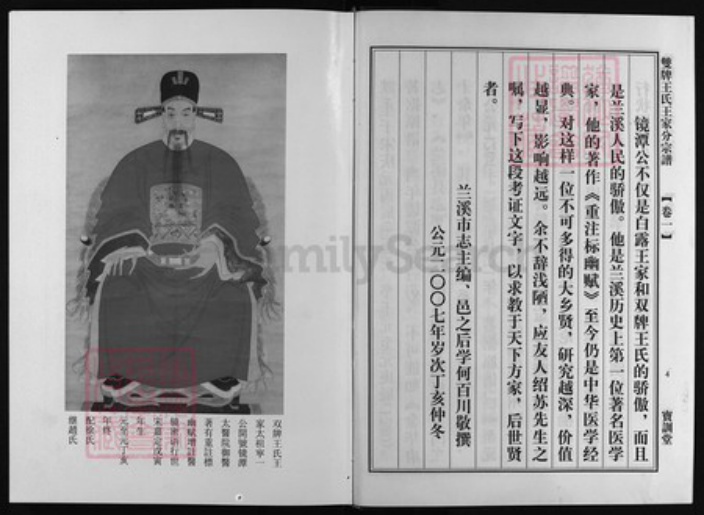 雙牌王氏王家分宗譜
【卷一】
4
寳訓堂
镜潭公不仅是白露王家和双牌王氏的骄傲，而且
是兰溪人民的骄傲。他是兰溪历史上第一位著名医学
家，他的著作《重注标幽赋》至今仍是中华医学经
典。对这样一位不可多得的大乡贤，研究越深，价值
越显，影响越远。余不辞浅陋，应友人绍苏先生之
嘱，写下这段考证文字，以求教于天下方家，后世贤
者。
兰溪市志主编、邑之后学何百川敬撰
公元二〇〇七年岁次丁亥仲冬
双牌王氏王
家太祖寧一
公開號鏡潭
太醫院御醫
著有重註標
幽賦增註醫
鏡密語行世
宋嘉定戊寅
年生
元至元丁亥
年終
配徐氏
繼趙氏
FamilySearch